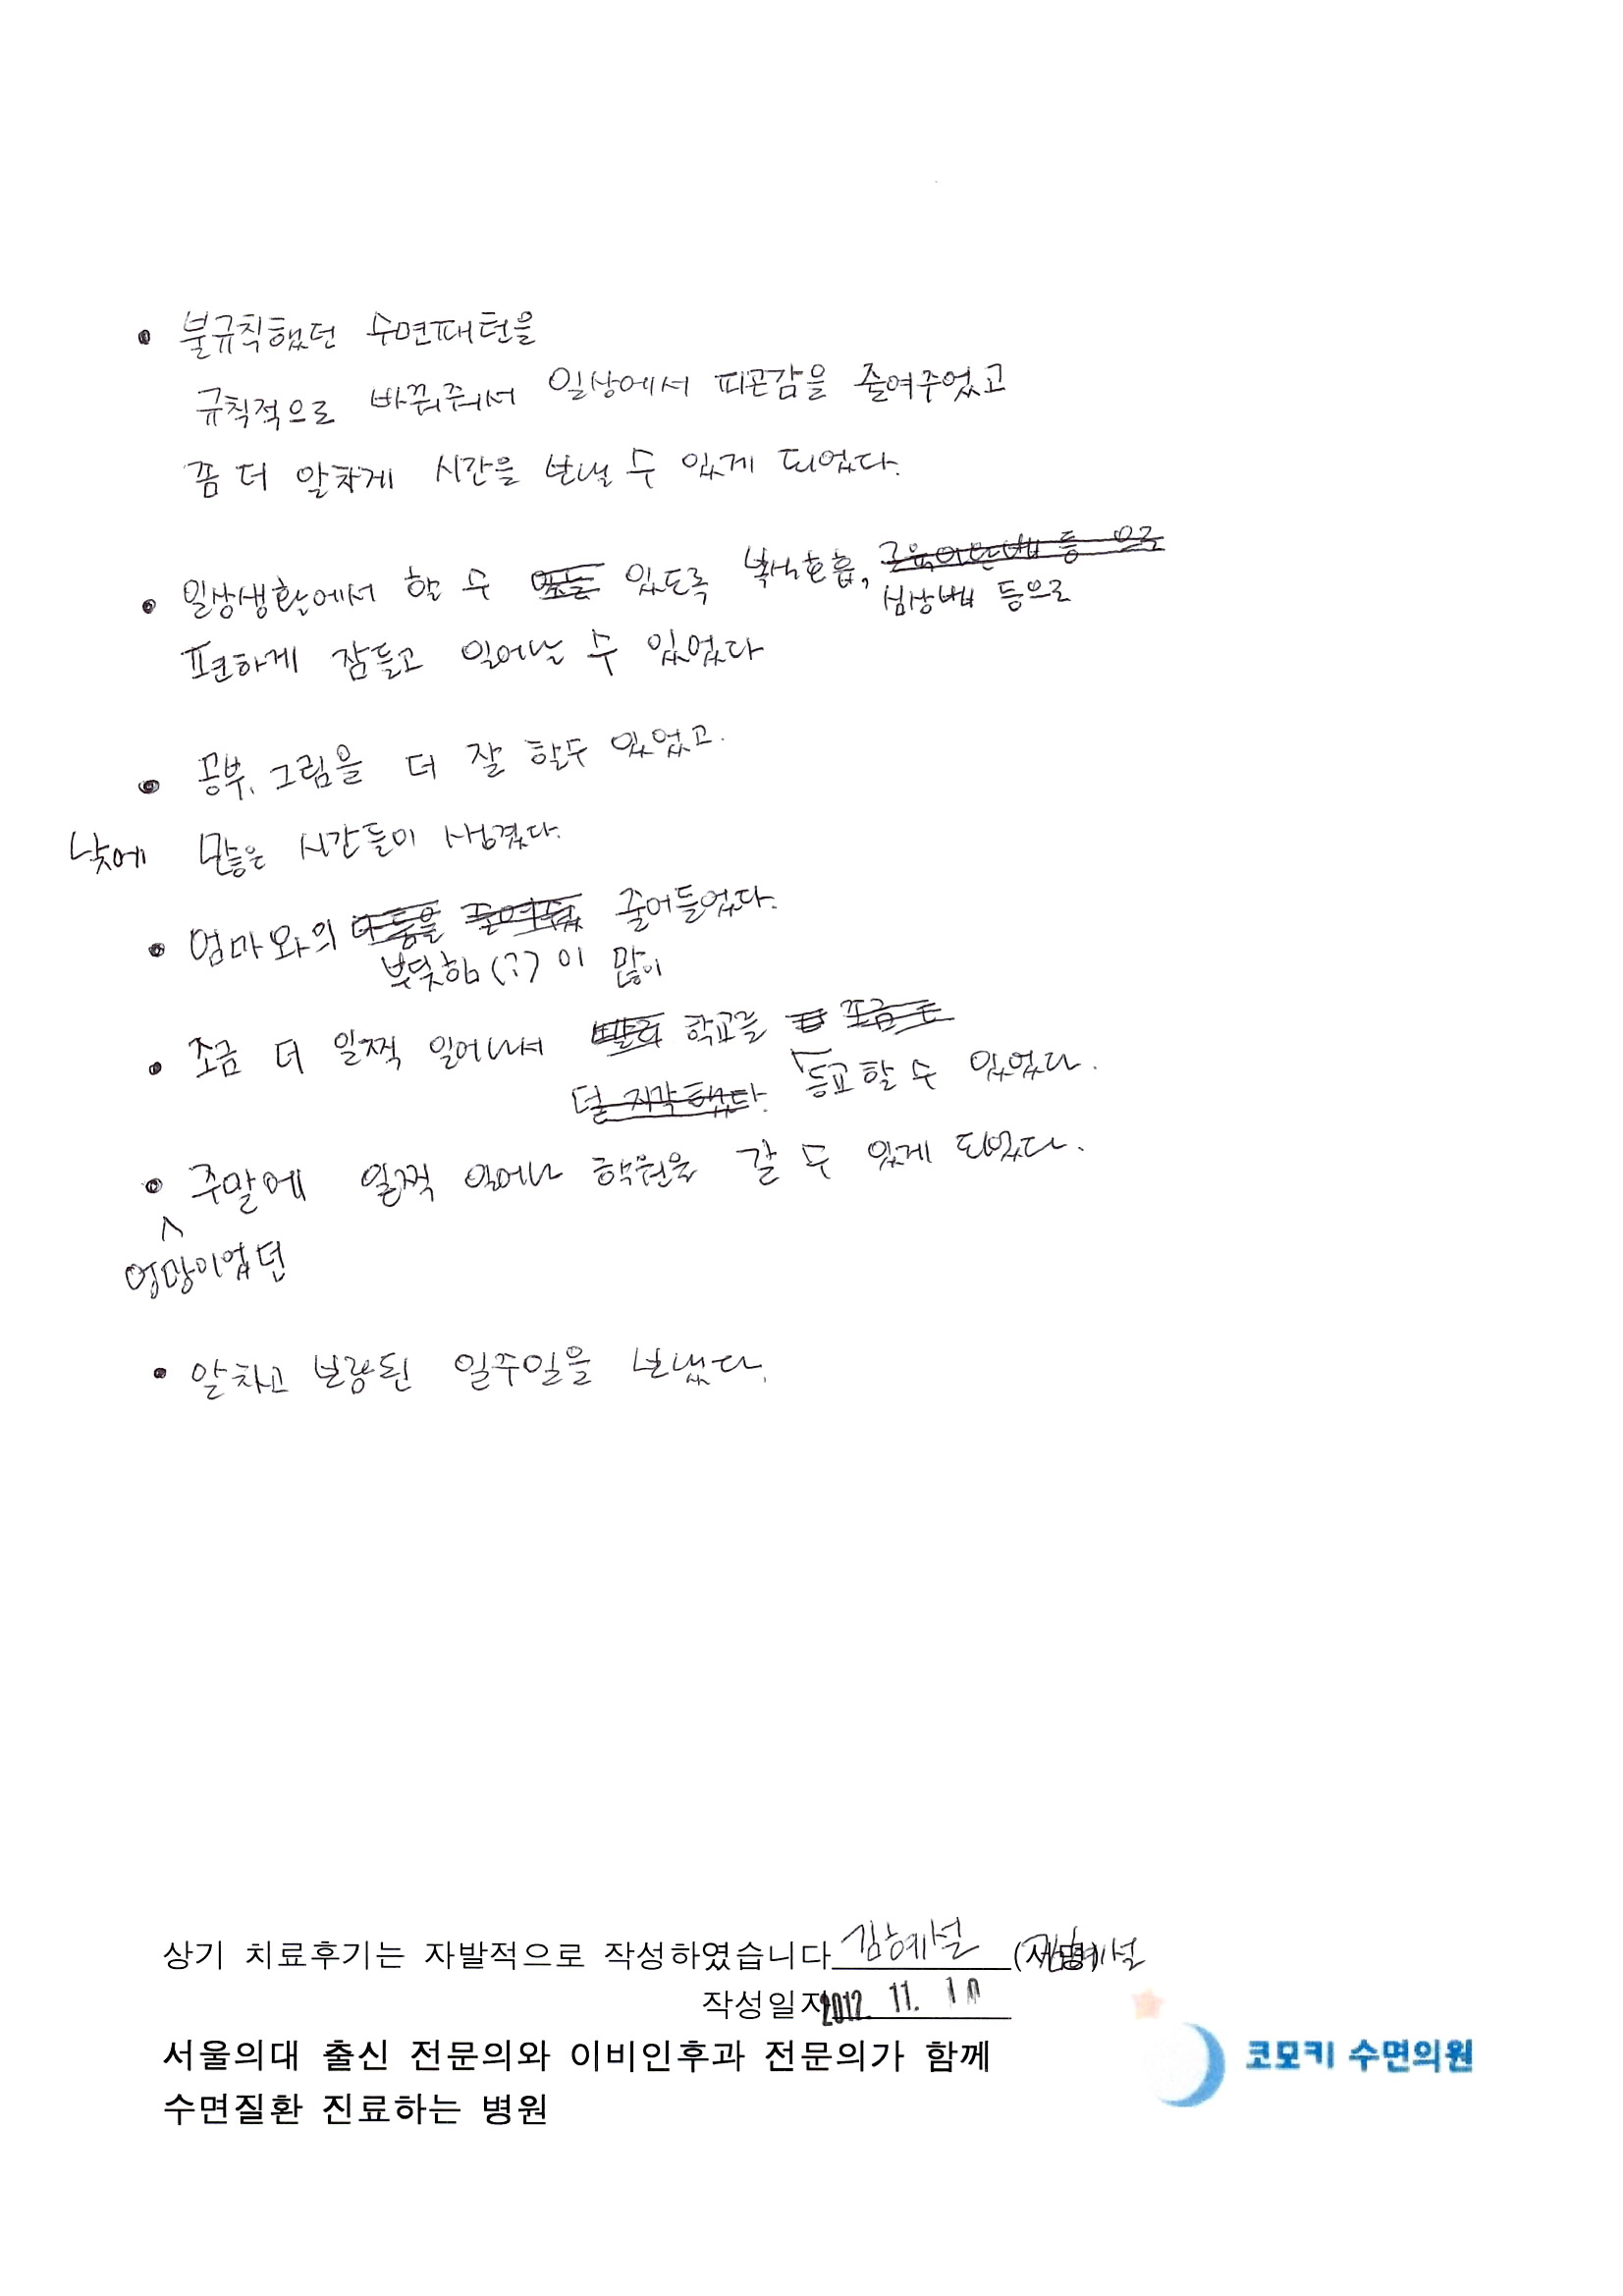 • 불규칙했던 수면패턴을
규칙적으로 바꿔줘서 일상에서 피곤감을 줄여주었고
좀 더 알차게 시간을 보낼 수 있게 되었다.
• 일상생활에서 할 수 있도록 복식호흡, 근육이완법 등 으로
심상법 등으로
편하게 잠들고 일어날 수 있었다
• 공부, 그림을 더 잘 할수 있었고.
낮에 많은 시간들이 생겼다.
• 엄마와의 줄어들었다.
부딪힘(?)이 많이
• 조금 더 일찍 일어나서 빨리 학교를 조금 더
덜 지각했다. 등교할 수 있었다.
• 주말에 일찍 일어나 학원을 갈 수 있게 되었다.
엉망이었던
• 알차고 보람된 일주일을 보냈다.
상기 치료후기는 자발적으로 작성하였습니다 김혜설 (서명) 김혜설
작성일자 2012. 11. 10
서울의대 출신 전문의와 이비인후과 전문의가 함께
수면질환 진료하는 병원
코모키 수면의원